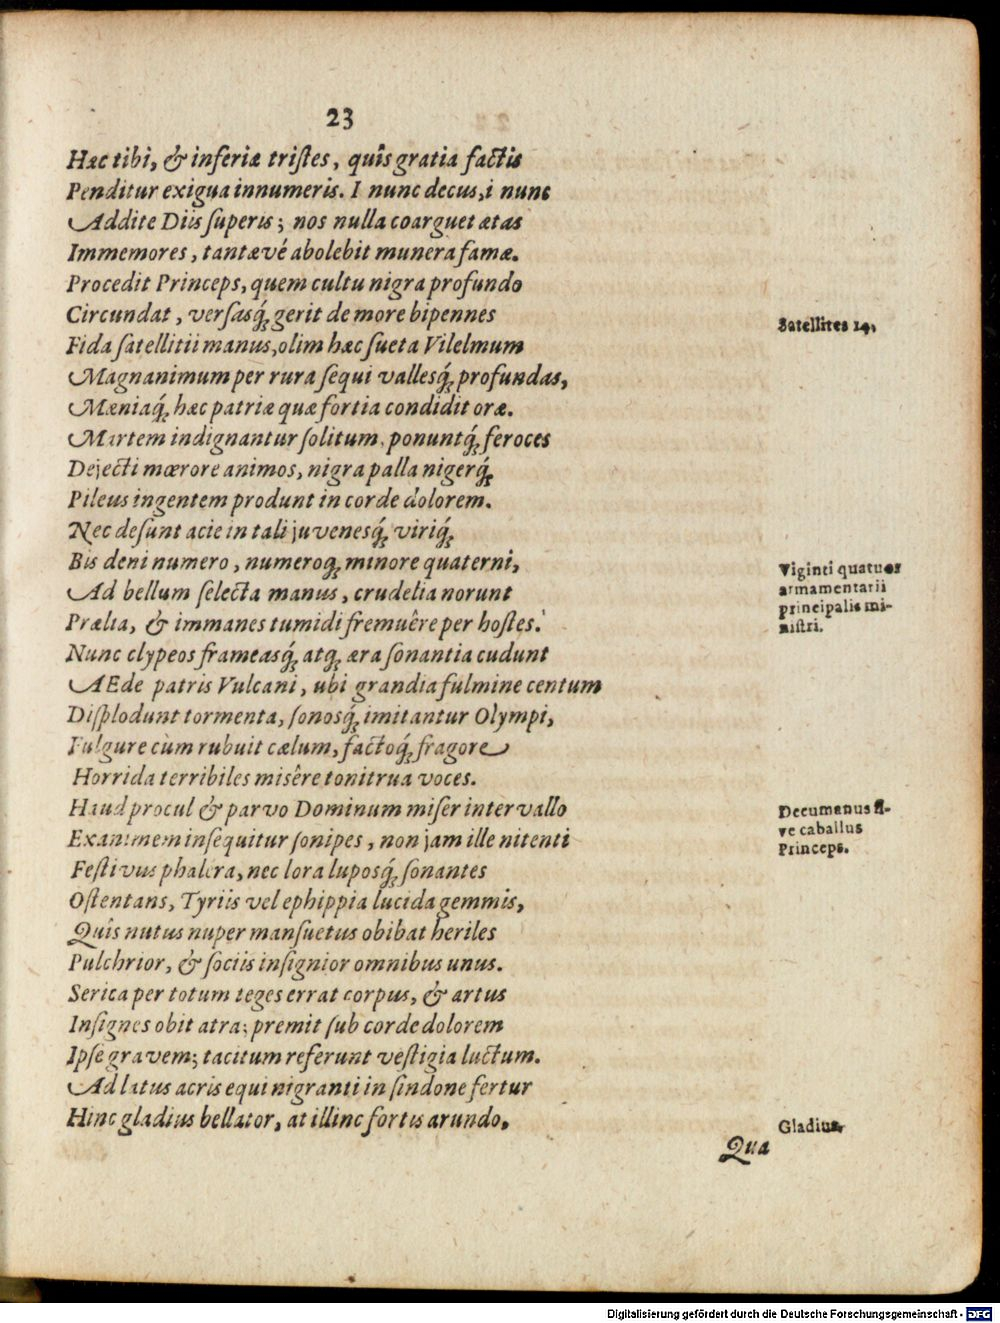 23
Hæc tibi, & inferiæ tristes, quîs gratia factis
Penditur exigua innumeris. I nunc decus, i nunc
Addite Diis superis; nos nulla coarguet ætas
Immemores, tantævé abolebit munera famæ.
Procedit Princeps, quem cultu nigra profundo
Circundat, versasq́; gerit de more bipennes
Satellites 14.
Fida satellitii manus, olim hæc sueta Vilelmum
Magnanimum per rura sequi vallesq́; profundas,
Mæniaq́; hæc patriæ quæ fortia condidit oræ.
Martem indignantur solitum, ponuntq́; feroces
Dejecti mœrore animos, nigra palla nigerq́;
Pileus ingentem produnt in corde dolorem.
Nec desunt acie in tali juvenesq́; viriq́;
Bis deni numero, numeroq; minore quaterni,
Ad bellum selecta manus, crudelia norunt
Prælia, & immanes tumidi fremuêre per hostes.
Viginti quatuor
armamentarii
principalis mi-
nistri.
Nunc clypeos frameasq́; atq; æra sonantia cudunt
AEde patris Vulcani, ubi grandia fulmine centum
Displodunt tormenta, sonosq́; imitantur Olympi,
Fulgure cùm rubuit cælum, factoq́; fragore
Horrida terribiles misêre tonitrua voces.
Haud procul & parvo Dominum miser intervallo
Exanimem insequitur sonipes, non jam ille nitenti
Decumanus si-
ve caballus
Princeps.
Festivus phalera, nec lora luposq́; sonantes
Ostentans, Tyriis vel ephippia lucida gemmis,
Quîs nutus nuper mansuetus obibat heriles
Pulchrior, & sociis insignior omnibus unus.
Serica per totum teges errat corpus, & artus
Insignes obit atra; premit sub corde dolorem
Ipse gravem; tacitum referunt vestigia luctum.
Ad latus acris equi nigranti in sindone fertur
Hinc gladius bellator, at illinc fortis arundo,
Gladius.
Qua
Digitalisierung gefördert durch die Deutsche Forschungsgemeinschaft - DFG